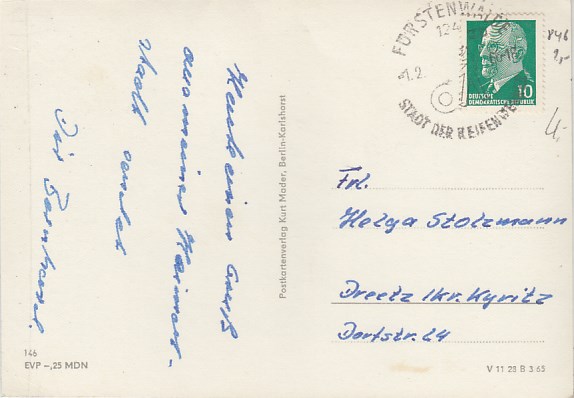 Heute einen Gruß
aus meiner Heimat-
stadt sendet
Postkartenverlag Kurt Mader, Berlin-Karlshorst
146
EVP –,25 MDN
FÜRSTENWALDE
124
1.2.
STADT DER REIFENWE
10
DEUTSCHE
DEMOKRATISCHE REPUBLIK
Frl.
Helga Stolzmann
Dreetz Kr. Kyritz
Dorfstr. 24
V 11 28 B 3 65